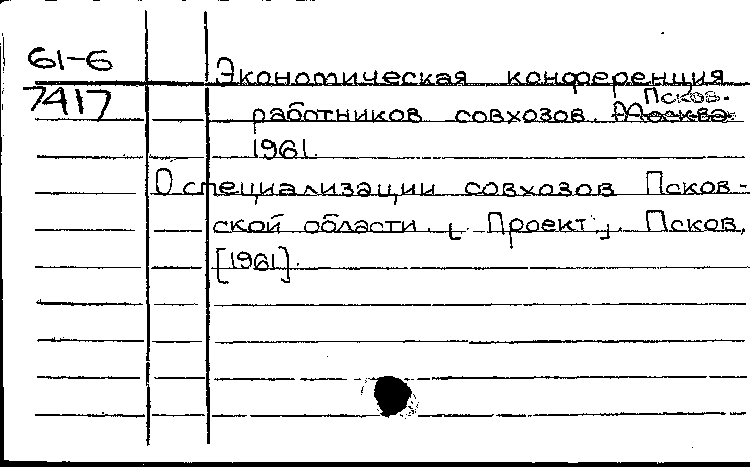 61-6
7417
Экономическая конференция
работников совхозов. Псков. Москва.
1961.
О специализации совхозов Псков-
ской области. [Проект]. Псков,
[1961].